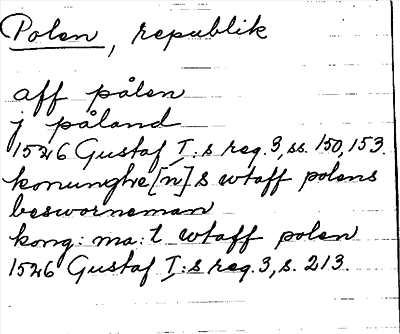 Polen, republik
aff pålen
j påland
1526 Gustaf I:s reg. 3, ss. 150, 153.
konunghe[n]s wtaff polens
besworneman
kong: ma:t wtaff polen
1526 Gustaf I:s reg. 3, s. 213.